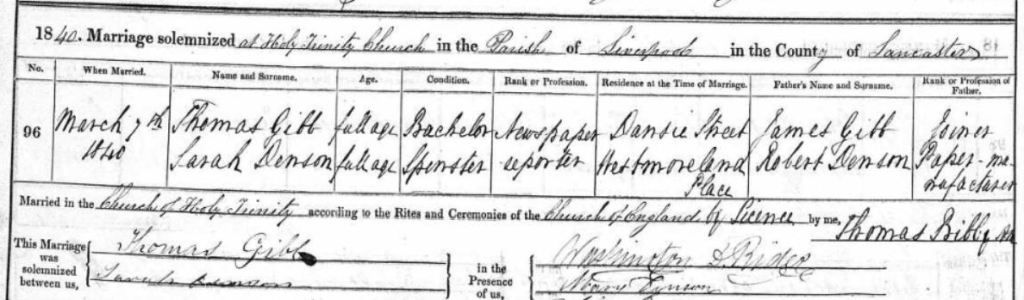 1840. Marriage solemnized at Holy Trinity Church in the Parish of Liverpool in the County of Lancaster
No. When Married. Name and Surname. Age. Condition. Rank or Profession. Residence at the Time of Marriage. Father's Name and Surname. Rank or Profession of Father.
96 March 7th 1840 Thomas Gibb full age Bachelor Newspaper reporter Dansie Street James Gibb Joiner
Sarah Denson full age Spinster Westmoreland Place Robert Denson Paper-manufacturer
Married in the Church of Holy Trinity according to the Rites and Ceremonies of the Church of England by Licence by me, Thomas Bibby
This Marriage was solemnized between us, Thomas Gibb
Sarah Denson
in the Presence of us, Washington
Mary